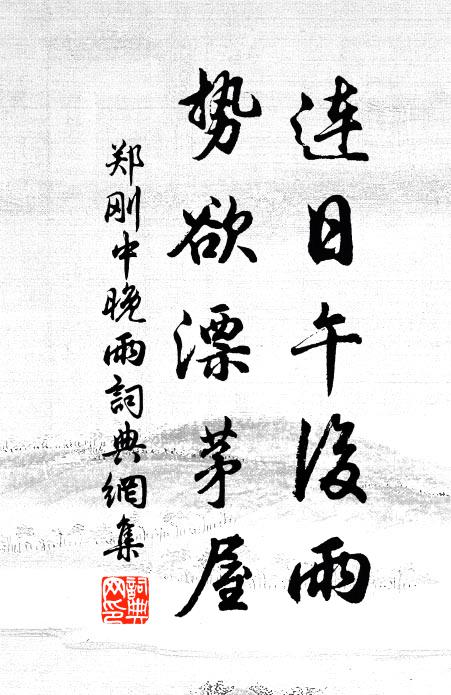 连日午後雨
势欲漂茅屋
郑刚中晚雨詞典網集
詞典网印